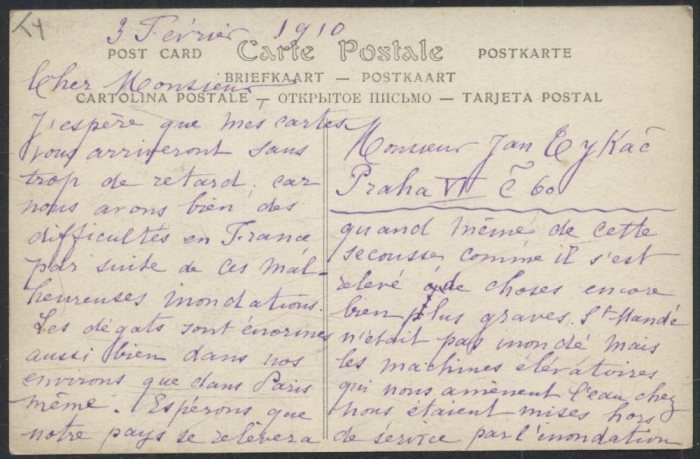 3 Février 1910
POST CARD Carte Postale POSTKARTE
BRIEFKAART — POSTKAART
CARTOLINA POSTALE — ОТКРЫТОЕ ПИСЬМО — TARJETA POSTAL
Cher Monsieur
J'espère que mes cartes
vous arriveront sans
trop de retard, car
nous avons bien des
difficultés en France
par suite de ces mal-
heureuses inondations.
Les dégats sont énormes
aussi bien dans nos
environs que dans Paris
même. Espérons que
notre pays se relèvera
Monsieur Jan Tykač
Praha VI č 60
quand même de cette
secousse comme il s'est
relevé de choses encore
bien plus graves. St Mandé
n'était pas inondé mais
les machines élévatoires
qui nous amènent l'eau chez
nous étaient mises hors
de service par l'inondation